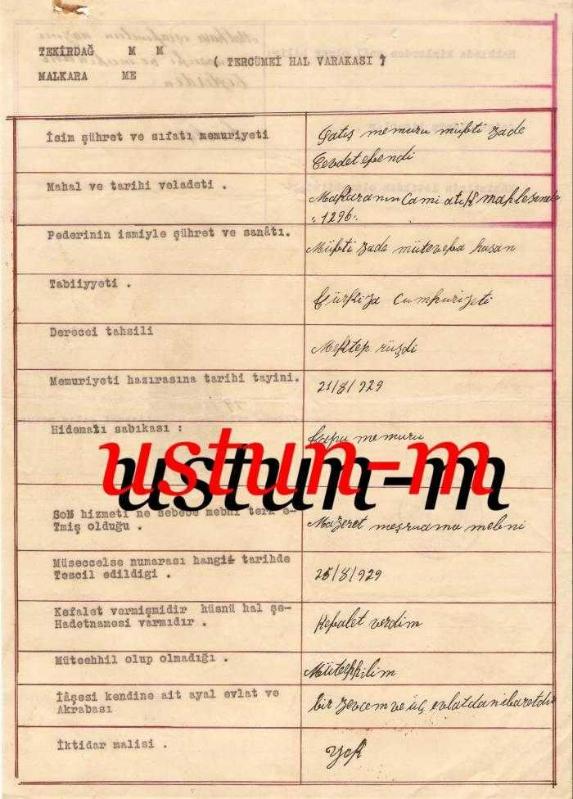 TEKİRDAĞ M M
( TERCÜMEİ HAL VARAKASI )
MALKARA ME
İsim şühret ve sıfatı memuriyeti
Satış memuru müfti zade
Cevdet efendi
Mahal ve tarihi veladeti .
Malkaranın Cami atik mahlesinde
1296.
Pederinin ismiyle şühret ve sanâtı.
Müfti zade müteveffa hasan
Tabiiyyeti .
Türkiya Cumhuriyeti
Derecei tahsili
Mektep rüşdi
Memuriyeti hazırasına tarihi tayini.
21/8/929
Hidematı sabıkası :
memuru
ustun-m
Son hizmeti ne sebebe mebni terk e-
Tmiş olduğu .
Mazeret meşruama mebni
Müseccelse numarası hangi tarihde
Tescil edildigi .
25/8/929
Kefalet vermişmidir hüsnü hal şe-
Hadetnamesi varmıdır .
Kefalet verdim
Müteehhil olup olmadığı .
Müteehhilim
İâşesi kendine ait ayal evlat ve
Akrabası
bir zevcem ve üç evlatdan ibaretdir
İktidar malisi .
Yok